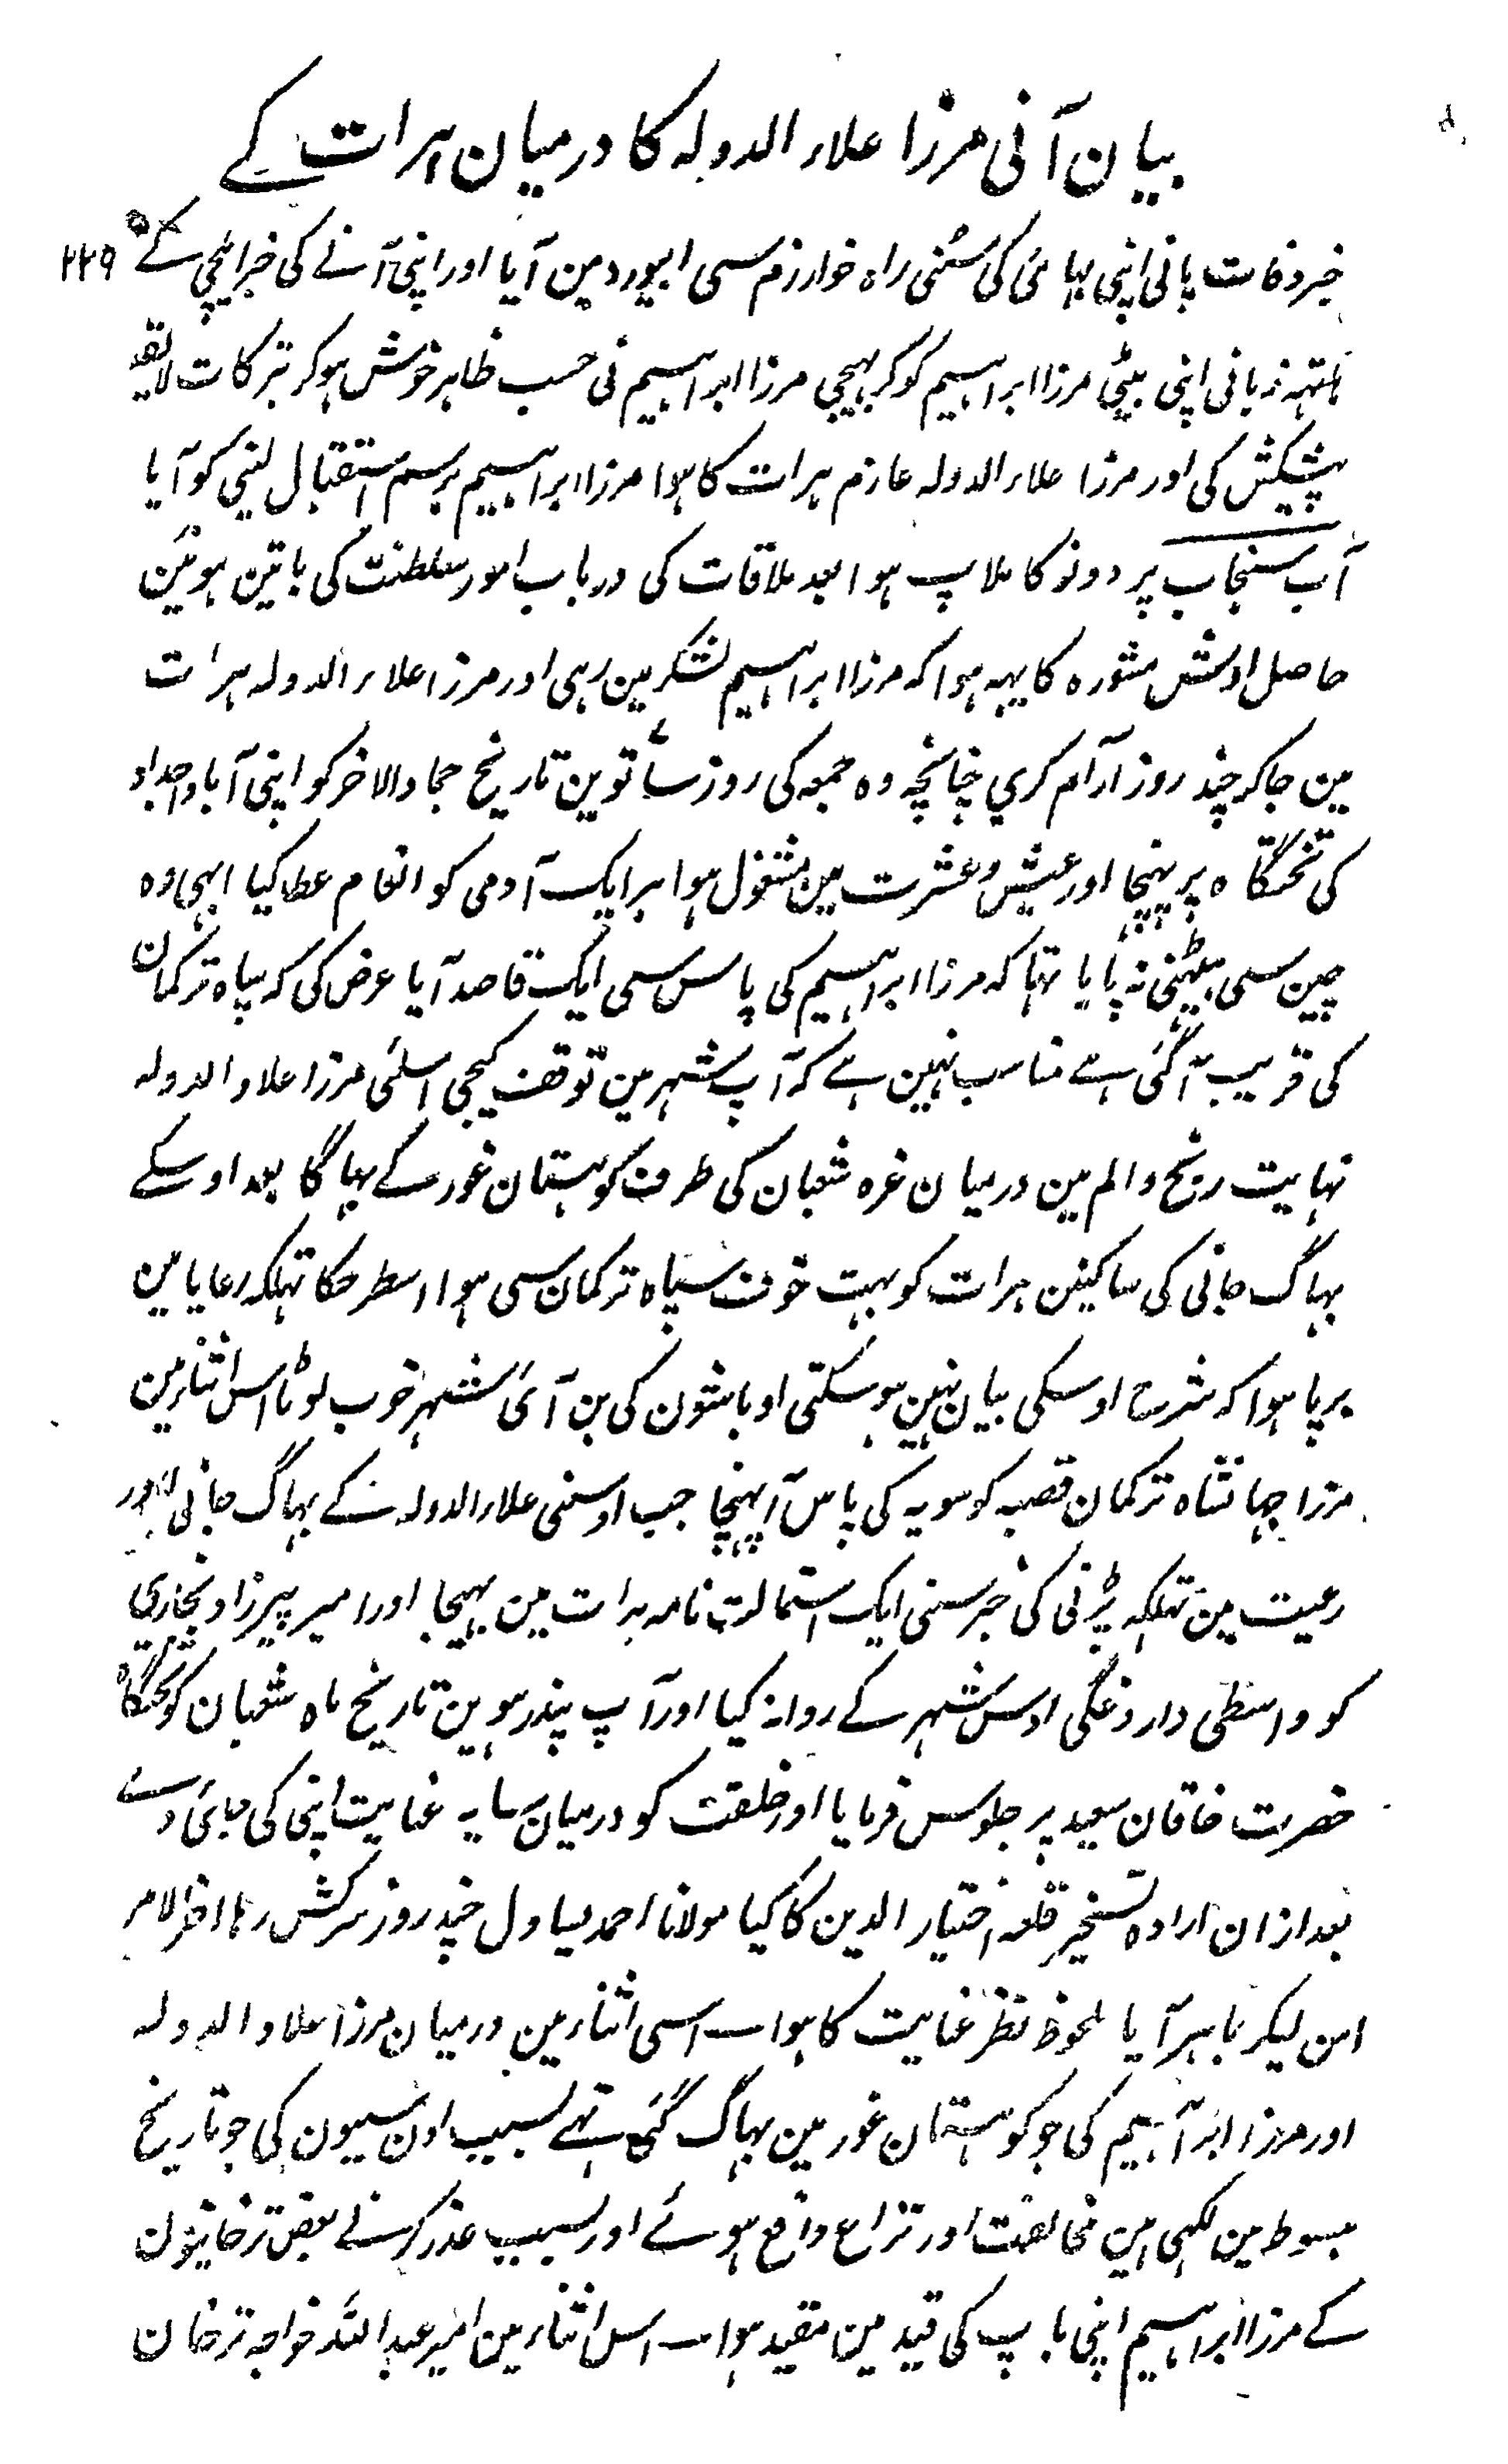 بیان آنی مرزا علاء الدولہ کا درمیان ہرات کے
خبر وفات پانی اپنی بہائی کی سنی راہ خوارزم سی ابیورد مین آیا اور اپنی آنے کی خبر ایلچی کے ۲۲۹
ہاتہہ زبانی اپنی بیٹی مرزا ابراہیم کو کہ بہیجی مرزا ابراہیم نی حسب ظاہر خوش ہو کر تبرکات لایقہ
پیشکش کی اور مرزا علاء الدولہ عازم ہرات کا ہوا مرزا ابراہیم برسم استقبال لینی کو آیا
آب سنجاب پر دونو کا ملاپ ہوا بعد ملاقات کی درباب امور سلطنت کی باتین ہوئین
حاصل اوس مشورہ کا یہہ ہوا کہ مرزا ابراہیم لشکر مین رہی اور مرزا علاء الدولہ ہرات
مین جا کر چند روز آرام کری چنانچہ وہ جمعہ کی روز ساتوین تاریخ جمادالاخر کو اپنی آبا و اجداد
کی تختگاہ پر پہنچا اور عیش و عشرت مین مشغول ہوا ہر ایک آدمی کو انعام عطا کیا ابہی وہ
چین سی بیٹہنی نہ پایا تہا کہ مرزا ابراہیم کی پاس سی ایک قاصد آیا عرض کی کہ سپاہ ترکمان
کی قریب آگئی ہے مناسب نہین ہے کہ آپ شہر مین توقف کیجی اسلئی مرزا علاو الدولہ
نہایت رنج و الم مین درمیان غرہ شعبان کی طرف کوہستان غور کے بہاگا بعد اوسکے
بہاگ جانی کی ساکنین ہرات کو بہت خوف سپاہ ترکمان سی ہوا اسطرحکا تہلکہ رعایا مین
برپا ہوا کہ شرح اوسکی بیان نہین ہوسکتی اوباشون کی بن آئی شہر خوب لوٹا اس اثنا مین
مرزا جہانشاہ ترکمان قصبہ کوسویہ کی پاس آ پہنچا جب اوسنی علاء الدولہ کے بہاگ جانی اور
رعیت مین تہلکہ پڑنی کی خبر سنی ایک استمالت نامہ ہرات مین بہیجا اور امیر پیرزاد بخاری
کو واسطی داروغگی اوس شہر کے روانہ کیا اور آپ پندرہوین تاریخ ماہ شعبان کو تختگاہ
حضرت خاقان سعید پر جلوس فرمایا اور خلقت کو درمیان سایہ عنایت اپنی کی جائی دے
بعد ازان ارادہ تسخیر قلعہ اختیار الدین کا کیا مولانا احمد یساول چند روز سرکش رہا آخرالامر
امن لیکر باہر آیا ملحوظ نظر عنایت کا ہوا اسی اثناء مین درمیان مرزا علاو الدولہ
اور مرزا ابراہیم کی جو کوہستان غور مین بہاگ گئی تہے بسبب اون سببون کی جو تاریخ
مبسوط مین لکہی ہین مخالفت اور نزاع واقع ہوئے اور بسبب عذر کرنے بعض ترخانیون
کے مرزا ابراہیم اپنی باپ کی قید مین مقید ہوا اس اثناء مین امیر عبد اللہ خواجہ ترخان